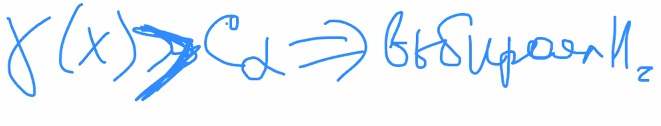 γ(x) > C_α ⇒ выбираем H₂